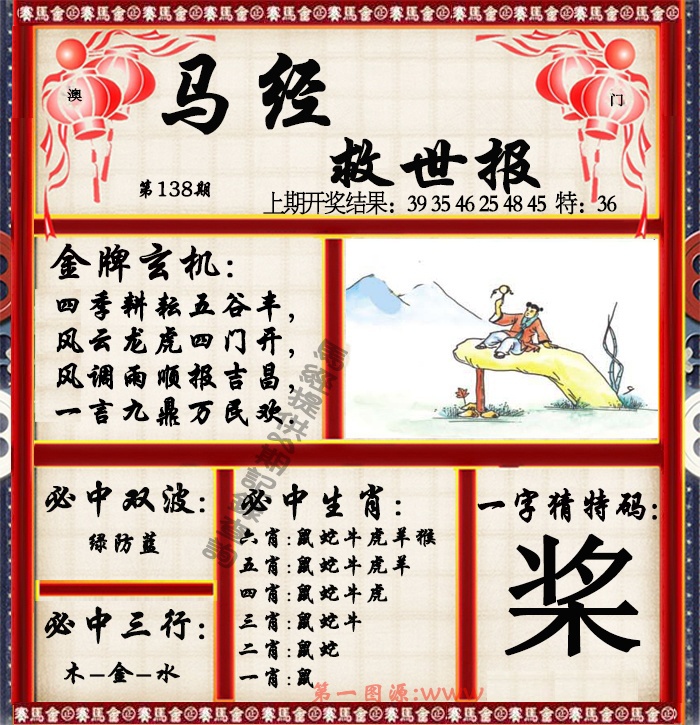 賽馬會正賽馬會正賽馬會正賽馬會正賽馬會正賽馬會正賽馬會正賽馬會
澳
门
马经
救世报
第138期
上期开奖结果：39 35 46 25 48 45 特：36
金牌玄机：
四季耕耘五谷丰，
风云龙虎四门开，
风调雨顺报吉昌，
一言九鼎万民欢.
必中双波：
绿防蓝
必中三行：
木–金–水
必中生肖：
六肖：鼠蛇牛虎羊猴
五肖：鼠蛇牛虎羊
四肖：鼠蛇牛虎
三肖：鼠蛇牛
二肖：鼠蛇
一肖：鼠
一字猜特码：
桨
第一图源：www